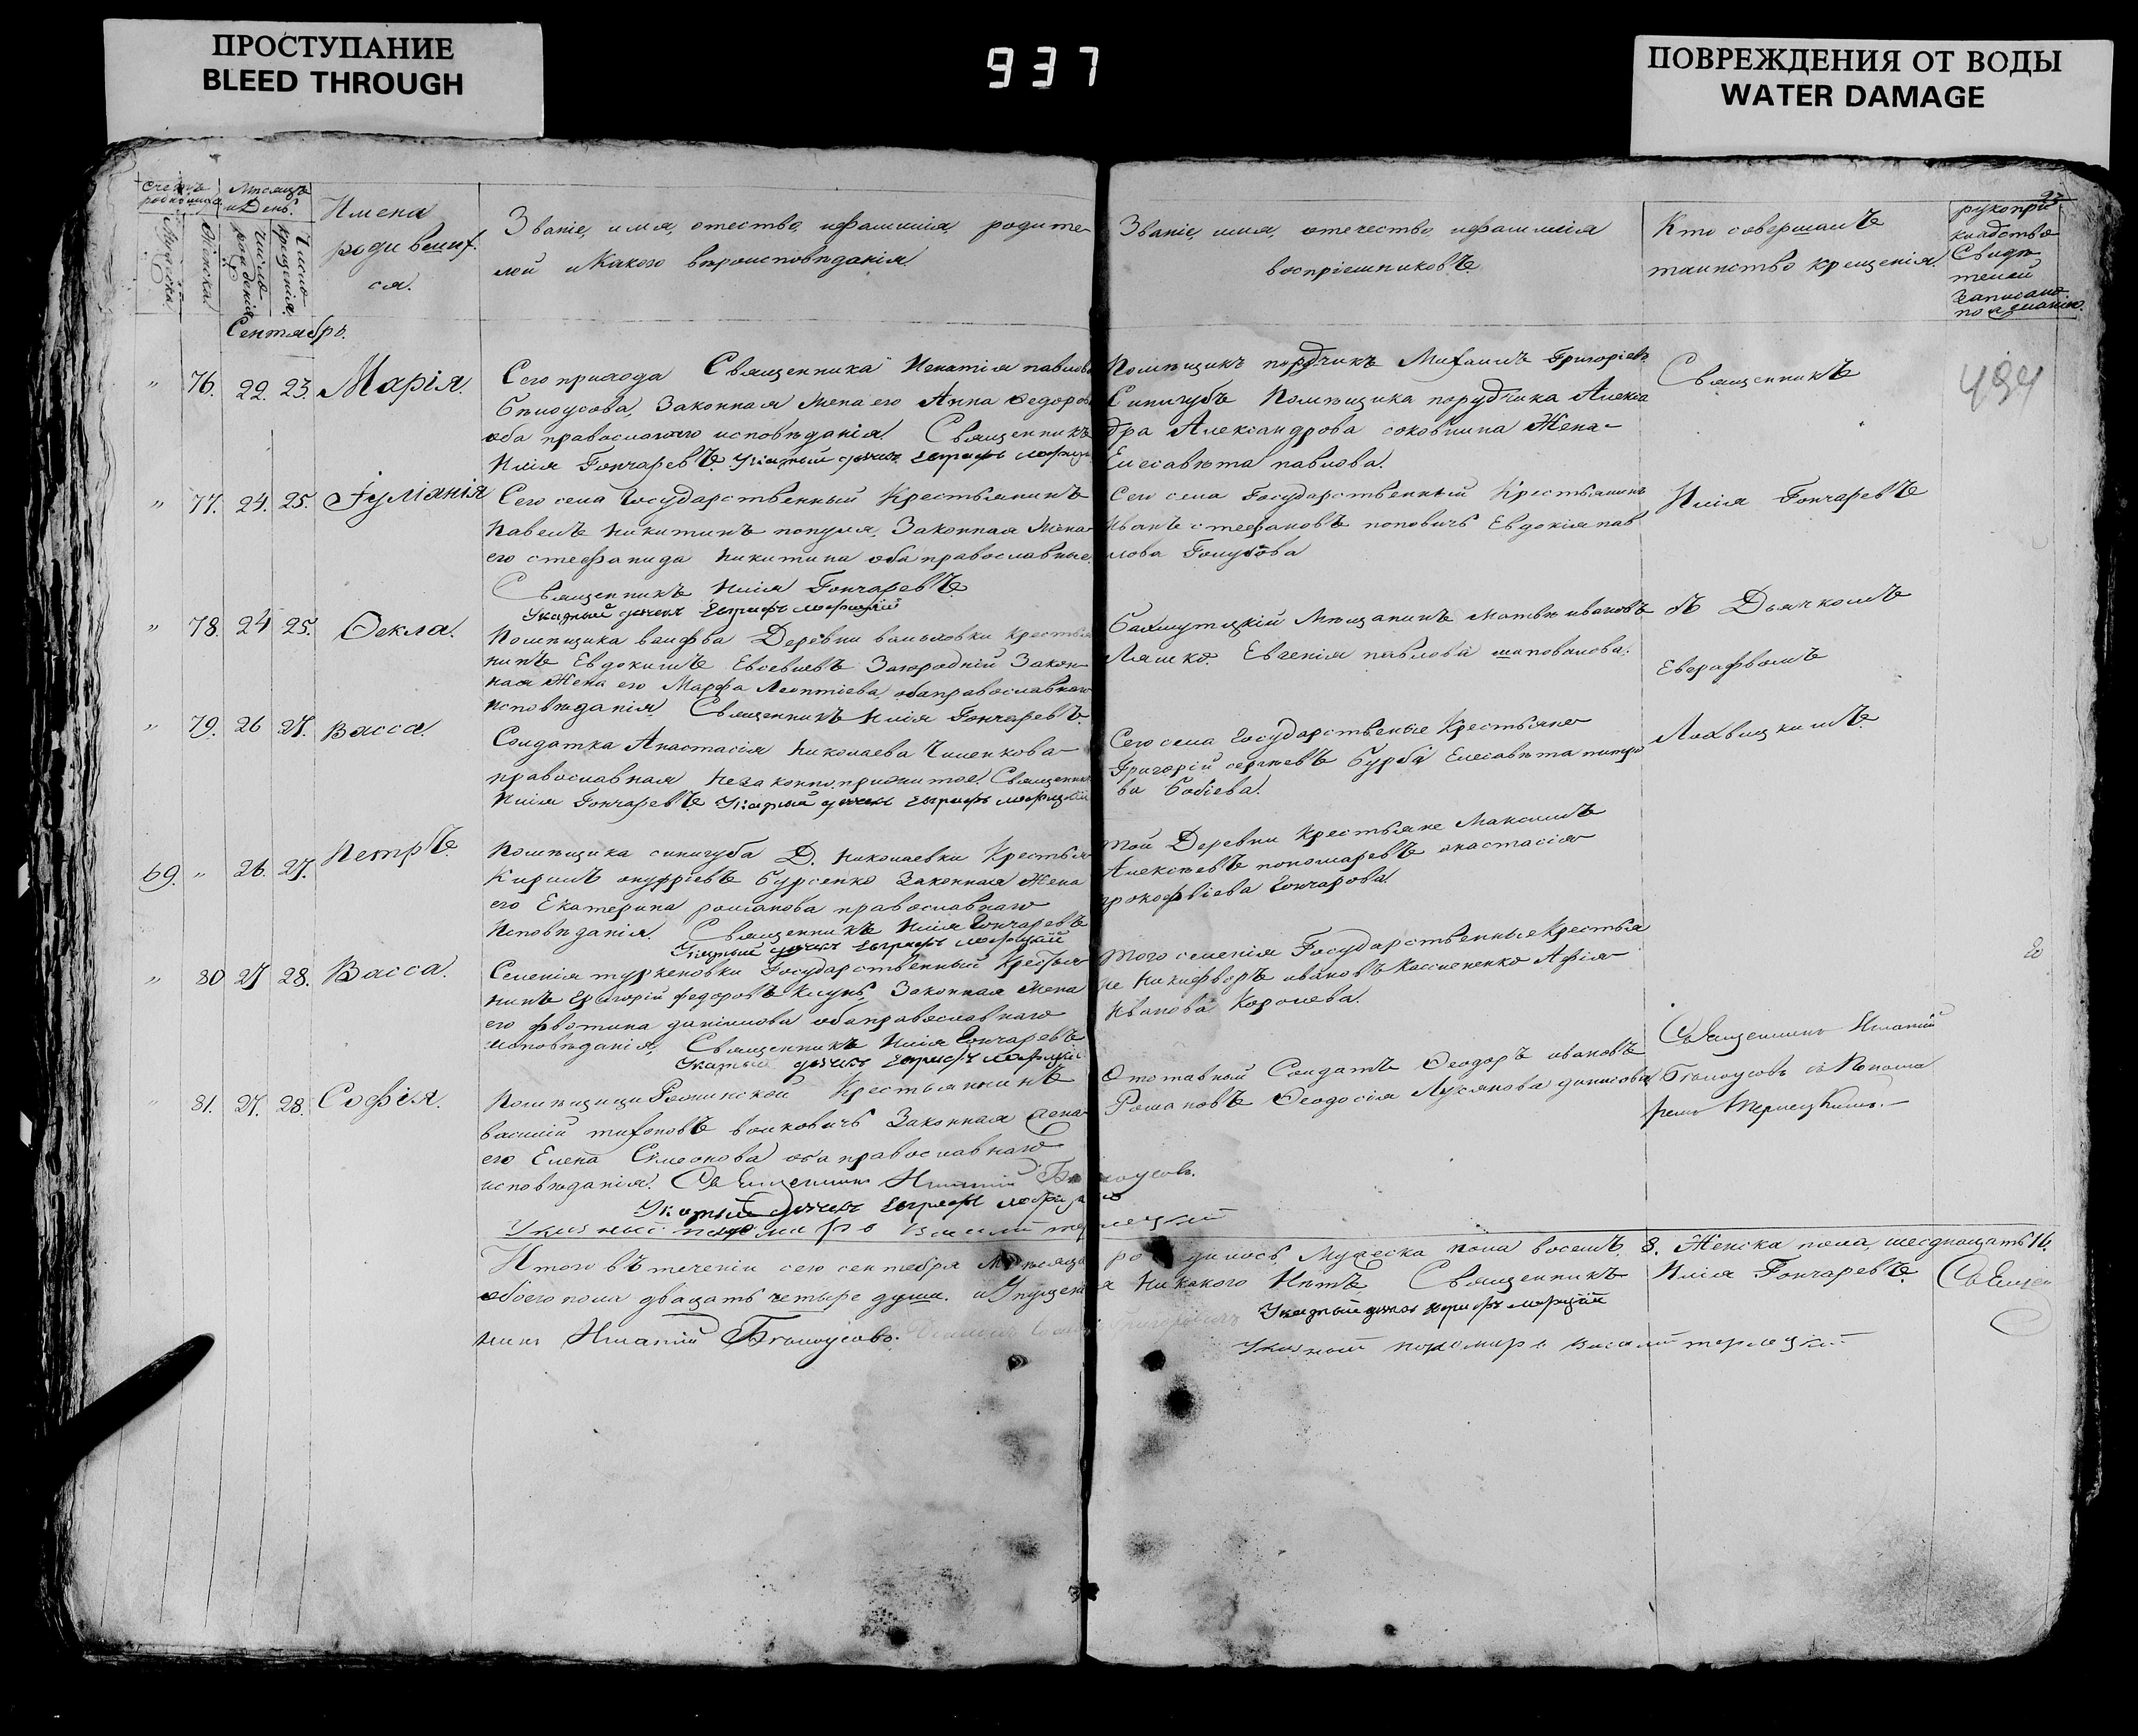 ПРОСТУПАНИЕ
BLEED THROUGH
937
ПОВРЕЖДЕНИЯ ОТ ВОДЫ
WATER DAMAGE
Счетъ родившихся
Мѣсяцъ и День.
Мужеска.
Женска.
Число рожденія
Число крещенія.
Имена
родивших
ся.
Званіе, имя, отество, ифамилія, родите-
лей и Какого вѣроисповѣданія.
Званіе, имя, отечество ифамилія
воспріемниковъ
Кто совершалъ
таинство крещенія.
рукопри
кладство
Свидѣ
телей
записано
по желанію.
Сентябрь.
" 76. 22. 23. Марія.
Сего прихода Священника Игнатія павлова
Бѣлоусова, Законная Жена его Анна Федорова
оба православного исповѣданія. Священникъ
Илія Гончаревъ.
Помѣщикъ порудчикъ Михаилъ Григоріевъ
Синигубъ Помѣщика порудчика Алекса
дра Александрова соковнина Жена-
Елесавѣта павлова.
Священникъ
494
" 77. 24. 25. Іуліанія
Сего села Государственный Крестьянинъ
Павелъ Никитинъ популя, Законная Жена
его стефанида Никитина оба православные.
Священникъ Илія Гончаревъ
Сего села Государственный Крестьянинъ
Иванъ стефановъ поповичь Евдокія пав
лова Голубова
Илія Гончаревъ
" 78. 24 25. Ѳекла.
Помѣщика Деревни Крестья
нинъ Евдокимъ Евсевіевъ Загородній Закон-
ная Жена его Марфа Леонтіева, оба православнаго
исповѣданія. Священникъ Илія Гончаревъ.
Бахмутцкій Мѣщанинъ Матвѣй ивановъ
Ляшко. Евгенія павлова шаповалова.
съ Дьячкомъ
Евграфомъ
" 79. 26 27. Васса.
Солдатка Анастасія Николаева Чиленкова
православная Незаконно прижитое. Священник
Илія Гончаревъ
Сего села Государственые Крестьяне
Григорій сергѣевъ Бурба Елесавѣта петро
ва Бабіева.
Лохвицкимъ.
69. " 26. 27. Петръ.
Помѣщика синигуба Д. Николаевки Крестья
Кирилъ онуфріевъ Бурсенко Законная Жена
его Екатерина романова православнаго
Исповѣданія. Священникъ Илія Гончаревъ
той Деревни Крестьяне Максимъ
Алексѣевъ пономаревъ анастасія
прокофьіева Гончарова.
" 80 27 28. Васса.
Селенія туркеновки Государственный Крестья
нинъ Григорій федоровъ Клунь, Законная Жена
его фвотина даніилова оба православнаго
исповѣданія, Священникъ Илія Гончаревъ
того селенія Государственные Крестья
не Никифоръ ивановъ Афія
Иванова Королева.
" 81. 27. 28. Софія.
Помѣщицы Крестьянинъ
василій тихоновъ волковичь Законная Жена
его Елена Симеонова оба православнаго
исповѣданія. Священникъ Игнатій Бѣлоусовъ.
Отставный Солдатъ Ѳеодоръ ивановъ
Романовъ Ѳеодосія Лукянова данилова
Священникъ Игнатій
Бѣлоусовъ съ Понома
ремъ Терлецкимъ.-
Указный пономарь Василій терлецкій
Итого въ теченіи сего сентебря Мѣсяца родилось, Мужеска пола восемъ. 8. Женска пола, шеснацать 16.
обоего пола двацать четыре души. и Упущенія Никакого Нѣтъ Священникъ Илія Гончаревъ Священ
никъ Игнатій Бѣлоусовъ.
Указный пономарь Василій терлецкій